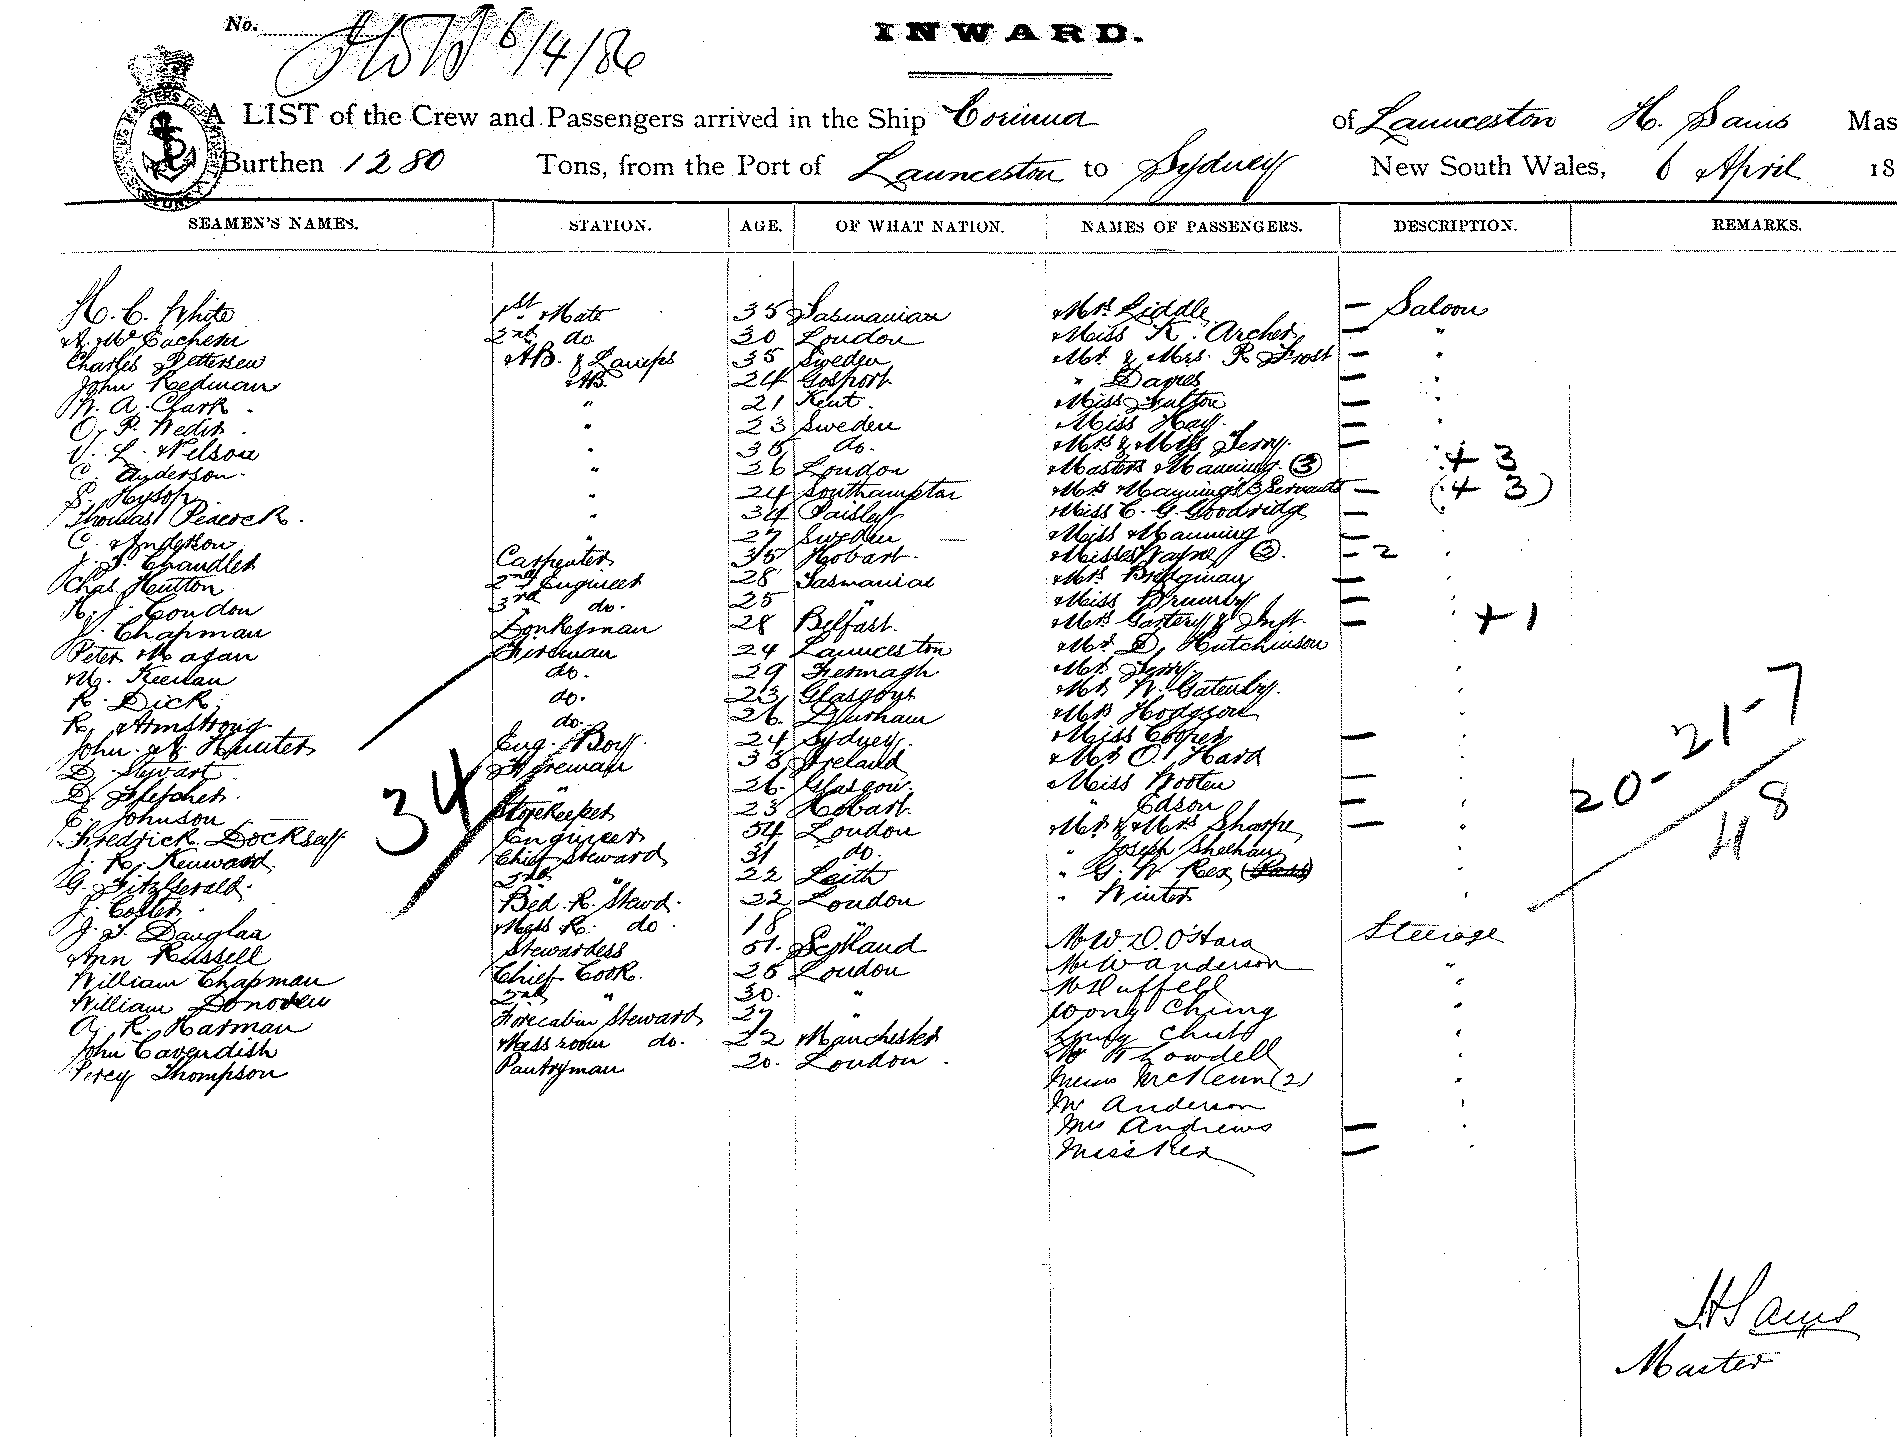 No. 6/4/86
INWARD.
A LIST of the Crew and Passengers arrived in the Ship Corinna of Launceston H. Sams Mas
Burthen 1280 Tons, from the Port of Launceston to Sydney New South Wales, 6 April 18
SEAMEN'S NAMES. STATION. AGE. OF WHAT NATION. NAMES OF PASSENGERS. DESCRIPTION. REMARKS.
H. C. White 1st Mate 35 Tasmanian Mrs Liddle — Saloon
A. McEachern 2nd do 30 London Miss K. Archer — "
Charles Pettersen AB. & Lamps 35 Sweden Mr. & Mrs. R Frost — "
John Redman AB. 24 Gosport " Davies — "
W. A. Clark " 21 Kent Miss — "
O. P. " 23 Sweden Miss Hay —
V. L. Nelson " 38 do. Mrs & Miss Terry —
C. Anderson " 26 London Masters Manning (3) + 3
S. Hyslop " 24 Southampton Mrs Manning's 3 Servants — (+ 3)
Thomas Peacock " 34 Paisley Miss C. G. Goodridge —
C. Anderson " 27 Sweden Miss Manning —
J. S. Chandler Carpenter 35 Hobart Misses Wayne (3) — 2
Chas Hutton 2nd Engineer 28 Tasmanian Mrs Bridgman —
R. J. Condon 3rd do. 25 " Miss Brumby —
J. Chapman Donkeyman 28 Belfast Mrs & Inft — + 1
Peter Magan Fireman 24 Launceston Mr. D. Hutchinson
M. Keenan do. 29 Fermagh Mr. Terry
R. Dick do. 23 Glasgow Mr W. Gatenby
R. Armstrong do. 26 Durham Mrs Hodgson
John. Hunter Eng. Boy 24 Sydney Miss Cooper —
D. Stewart Fireman 33 Ireland Mr O'Hara
D. Fletcher " 26 Glasgow Miss Wooten —
E. Johnson Storekeeper 23 Hobart " Edson —
Fredrick Docksey Engineer 54 London Mr & Mrs Sharpe —
J. R. Kenward Chief Steward 31 do. " Joseph Sheehan
G. Fitzgerald 2nd " 22 Leith " G. W. Rex (Pass)
J. Coster Bed. R. Stewd. 22 London " Winter
J. T. Douglas Mess R. do. 18 "
Ann Russell Stewardess 51 Scotland Mr W. D. O'Hara Steerage
William Chapman Chief Cook 25 London Mr W anderson "
William Donoven 2nd " 30 "
A. R. Harman Forecabin Steward 27 " Wong Ching
John Cavendish Mess room do. 22 Manchester
Percy Thompson Pantryman 20 London Lowdell
(2)
Mr Anderson
Mrs Andrews —
Miss Rex —
34
20 - 21 - 7
48
H Sams
Master